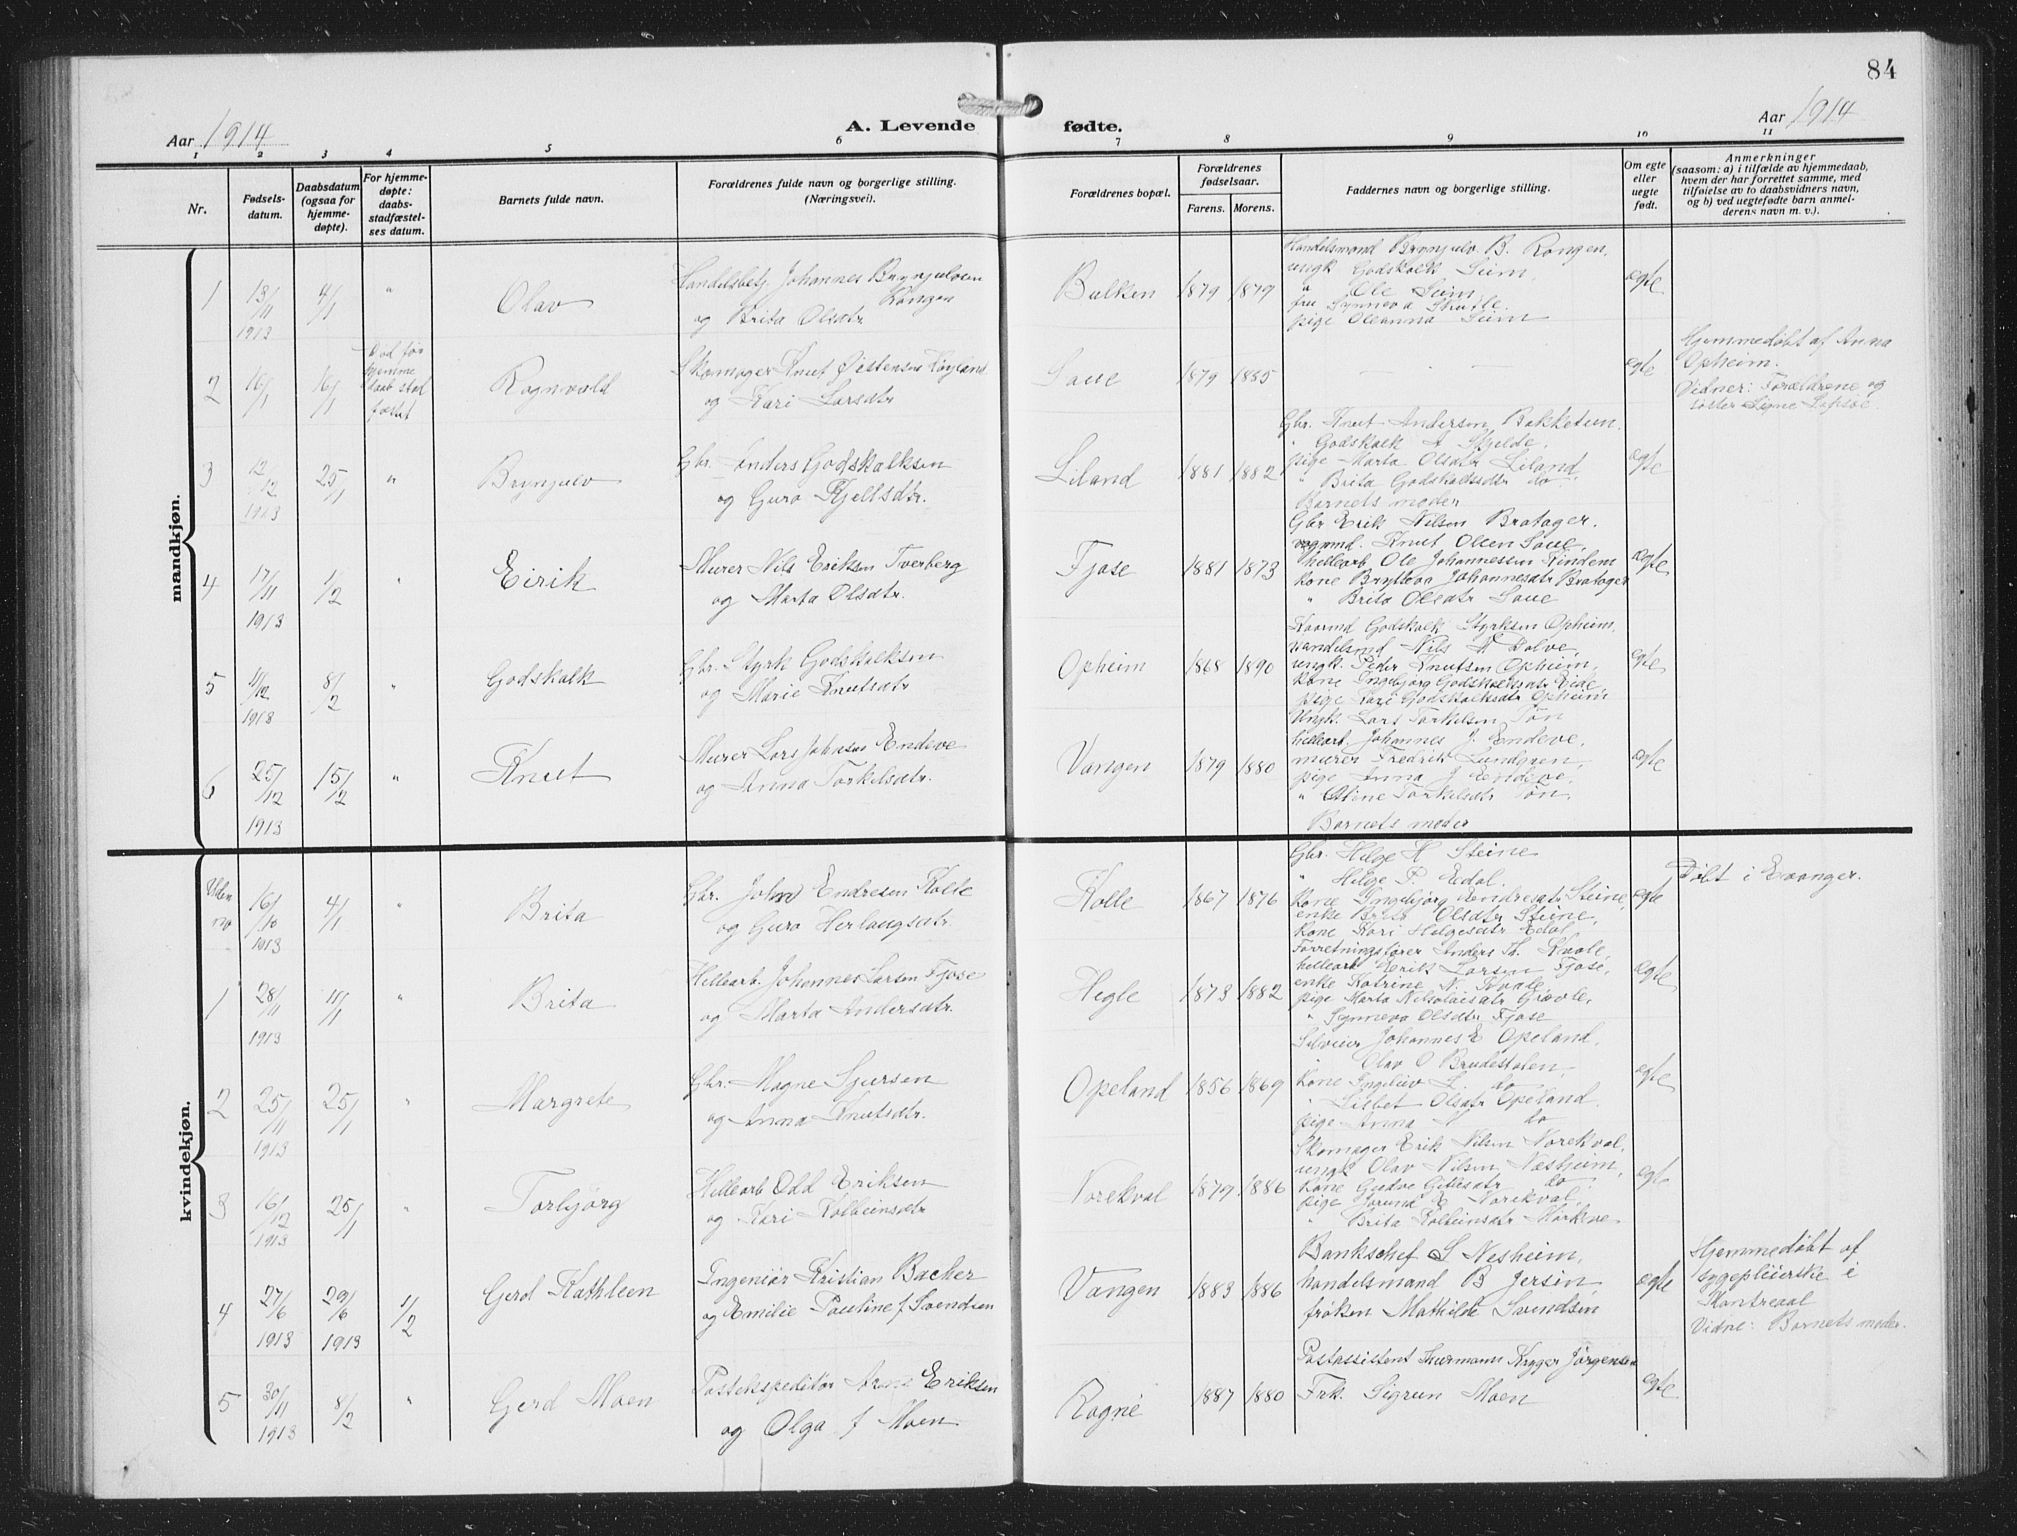 84
Aar 1914
A. Levende fødte.
Aar 1914
1 2 3 4 5 6 7 8 9 10 11
Nr.
Fødsels-
datum.
Daabsdatum
(ogsaa for
hjemme-
døpte).
For hjemme-
døpte:
daabs-
stadfæstel-
ses datum.
Barnets fulde navn.
Forældrenes fulde navn og borgerlige stilling.
(Næringsvei).
Forældrenes bopæl.
Forældrenes
fødselsaar.
Farens. Morens.
Faddernes navn og borgerlige stilling.
Om egte
eller
uegte
født.
Anmerkninger
(saasom: a) i tilfælde av hjemmedaab,
hvem der har forrettet samme, med
tilføielse av to daabsvidners navn,
og b) ved uegtefødte barn anmel-
derens navn m. v.).
mandkjøn.
1 13/11 1913 4/1 " Olav
Handelsbetj. Johannes Brynjulvsen
Rongen
og Brita Olsdtr.
Bulken 1879 1879
Handelsmand Brynjulv B. Rongen,
ungk Godskalk Seim,
" Ole Seim
fru Synneva Skutle.
pige Oleanna Seim
egte
2 16/1 16/1
Død før
hjemme
daab stad
fæstet
Rognvald
Skomager Knut Øistensen Røyland
og Kari Larsdtr
Saue 1879 1885
egte
Hjemmedøbt af Anna
Opheim.
Vidner: Forældrene og
søster Signe
3 12/12 1913 25/1 " Brynjulv
Gbr. Anders Godskalksen
og Guro Kjelsdtr.
Liland 1881 1882
Gbr. Knut Andersen Bakketun.
" Godskalk A Skjelde.
pige Marta Olsdtr Liland
" Brita Godskalksdtr do
Barnets moder
egte
4 17/11 1913 1/2 " Eirik
Murer Nils Eriksen Tverberg
og Marta Olsdtr.
Fjose 1881 1873
Gbr Erik Nilsen Bratager.
Knut Olsen Saue
hellearb Ole Johannessen Rindem
kone Bryteva Johannesdtr Bratager
" Brita Olsdtr Saue
egte
5 4/12 1913 8/2 " Godskalk
Gbr. Styrk Godskalksen
og Marie Knutsdtr
Opheim 1868 1890
Kaarmd Godskalk Styrksen Opheim,
handelsmd Nils N Dolve,
ungk. Peder Knutsen Opheim,
kone Ingebjørg Godskalksdtr Eide,
pige Kari Godskalksdtr Opheim
egte
6 25/12 1913 15/2 " Knut
Murer Lars Johnsen Endeve
og Anna Torkelsdtr.
Vangen 1879 1880
Ungk. Lars Torkelsen Tøn
hellearb. Johannes J. Endeve,
murer Fredrik Lundgren,
pige Anna J Endeve,
" Stine Torkelsdtr Tøn,
Barnets moder
egte
kvindekjøn.
Uden no 16/10 1913 4/1 " Brita
Gbr. John Endresen Kolle
og Guro Herlaugsdtr.
Kolle 1867 1876
Gbr. Helge H Steine
" Helge P. Edal.
kone Ingebjørg Endresdtr Steine,
enke Brita Olsdtr Steine,
kone Kari Helgesdtr Edal
egte
Døbt i Evanger.
1 28/11 1913 11/1 " Brita
Hellearb. Johannes Larsen Fjose
og Marta Andersdtr.
Hegle 1873 1882
Forretningsfører Anders Th. Kvale,
hellearb Erik Larsen Fjose,
enke Katrine N. Kvale,
pige Marta Nikolaisdtr Grevle,
" Synneva Olsdtr Fjose
egte
2 25/11 1913 25/1 " Margrete
Gbr. Magne Sjursen
og Anna Knutsdtr.
Opeland 1856 1869
Selveier Johannes E Opeland,
" Olav O Brudestolen,
kone Ingeliv L. do
" Lisbet Olsdtr Opeland
pige Anna M do
egte
3 16/12 1913 25/1 " Torbjörg
Hellearb Odd Eriksen
og Kari Kolbeinsdtr
Norekval 1879 1886
Skomager Erik Nilsen Norekval,
ungk Olav Nilsen Næsheim,
kone Gudve Gitlesdtr do
pige Jorund E Norekval
" Brita Kolbeinsdtr Mørkve
egte
4 27/6 1913 29/6 1913 1/2 Gerd Kathleen
Ingeniør Kristian Backer
og Emilie Pauline f Svendsen
Vangen 1883 1886
Bankschef S Nesheim,
handelsmand B Jersin,
frøken Mathilde Svendsen
egte
Hjemmedøbt af
sygepleierske i
Montreaal
Vidne: Barnets moder.
5 30/11 1913 8/2 " Gerd Moen
Postekspeditør Arne Eriksen
og Olga f Moen
Rogne 1887 1880
Postassistent Thurmann Kryger Jørgensen
Frk. Sigrun Moen
egte